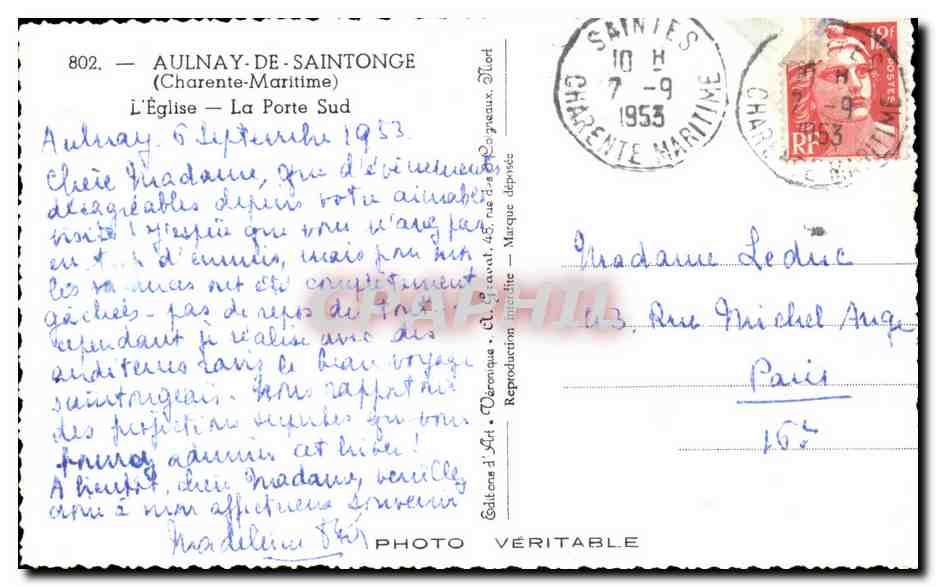 802. — AULNAY-DE-SAINTONGE
(Charente-Maritime)
L'Église — La Porte Sud
Aulnay 6 Septembre 1953
Chère Madame, que d'évènements
désagréables depuis votre aimable
visite ! J'espère que vous n'avez pas
eu d'ennuis, mais pour nous
les vacances ont été complètement
gâchées - pas de repos du tout
cependant je réalise avec des
auditeurs ravis le beau voyage
saintongeais. Nous rapportons
des projections superbes que vous
pourrez admirer cet hiver !
A bientôt, chère Madame, veuillez
croire à mon affectueux souvenir
Madeleine
Editions d'Art "Véronique", A. Gravat, 45, rue des Coigneaux, Niort
Reproduction interdite — Marque déposée
PHOTO VÉRITABLE
SAINTES
10 H
7 -9
1953
CHARENTE MARITIME
12F
POSTES
RF
H
7 -9
1953
CHARENTE MARITIME
Madame Leduc
Rue Michel Ange
Paris
16e
CPAPHIL